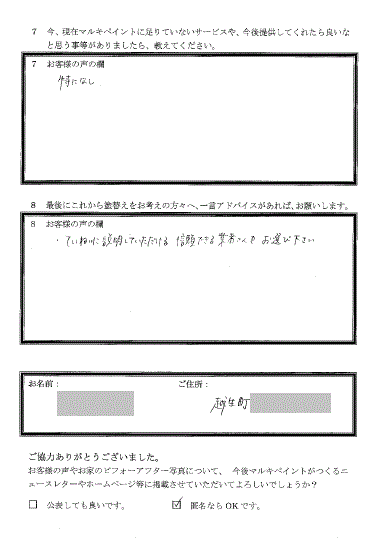 7 今、現在マルキペイントに足りていないサービスや、今後提供してくれたら良いな
と思う事等がありましたら、教えてください。
7 お客様の声の欄
特になし
8 最後にこれから塗替えをお考えの方々へ、一言アドバイスがあれば、お願いします。
8 お客様の声の欄
・ていねいに説明していただける 信頼できる業者さんを お選び下さい
お名前: ご住所:
越生町
ご協力ありがとうございました。
お客様の声やお家のビフォーアフター写真について、 今後マルキペイントがつくるニ
ュースレターやホームページ等に掲載させていただいてよろしいでしょうか?
☐ 公表しても良いです。 ☑ 匿名なら OK です。